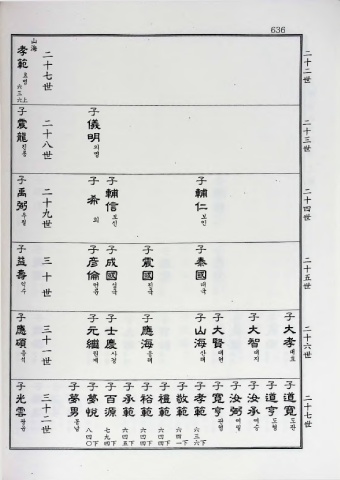 636
二十二世
二十三世
二十四世
二十五世
二十六世
二十七世
山海
孝範 효범 六三六上
二十七世
子儀明 의명
子震龍 진룡
二十八世
子輔仁 보인
子輔信 보신
子希 희
子禹弼 우필
二十九世
子泰國 태국
子震國 진국
子成國 성국
子彦倫 언륜
子益壽 익수
三十世
子大孝 대효
子大智 대지
子大賢 대현
子山海 산해
子應海 응해
子士慶 사경
子元繼 원계
子應碩 응석
三十一世
子道寬 도관
子道亨 도형
子汝承 여승
子汝弼 여필
子寬亨 관형
子孝範 六三六下
子敬範 六四一下
子禮範 六四四下
子裕範 六四四下
子承範 六四五下
子百源 七九四下
子夢悅 八四〇下
子夢男 몽남
子光雲 광운
三十二世